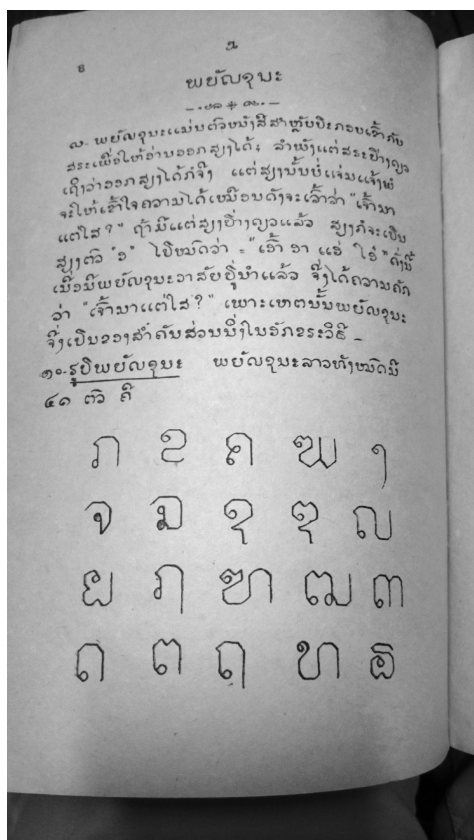 ໘
ພຍັຎຊນະ
໙- ພຍັຎຊນະແມ່ນຕົວໜັງສືສຳຫຼັບປະກອບເຂົ້າກັບ
ສຣະເພື່ອໃຫ້ອ່ານອອກສຽງໄດ້; ລຳພັງແຕ່ສຣະຢ່າງດຽວ
ເຖິງວ່າອອກສຽງໄດ້ກໍຈິງ ແຕ່ສຽງນັ້ນບໍ່ແຈ່ມແຈ້ງພໍ
ຈະໃຫ້ເຂົ້າໃຈຄວາມໄດ້ເໝືອນດັ່ງຈະເວົ້າວ່າ "ເຈົ້າມາ
ແຕ່ໃສ?" ຖ້າມີແຕ່ສຽງຢ່າງດຽວແລ້ວ ສຽງກໍຈະເປັນ
ສຽງຕົວ "ອ" ໄປໝົດວ່າ - "ເອົ້າ ອາ ແອ່ ໃອ" ດັ່ງນີ້
ເມື່ອມີພຍັຎຊນະອາສັຍຢູ່ນຳແລ້ວ ຈຶ່ງໄດ້ຄວາມຄັກ
ວ່າ "ເຈົ້າມາແຕ່ໃສ?" ເພາະເຫຕນັ້ນພຍັຎຊນະ
ຈຶ່ງເປັນຂອງສຳຄັນສ່ວນນຶ່ງໃນອັກຂຣະວິຘີ -
໑໐-ຮູປພຍັຎຊນະ ພຍັຎຊນະລາວທັງໝົດມີ
໔໑ ຕົວ ຄື
ກ ຂ ຄ ຆ ງ
ຈ ຉ ຊ ຌ ຎ
ຏ ຐ ຑ ຒ ຓ
ດ ຕ ຖ ທ ຘ